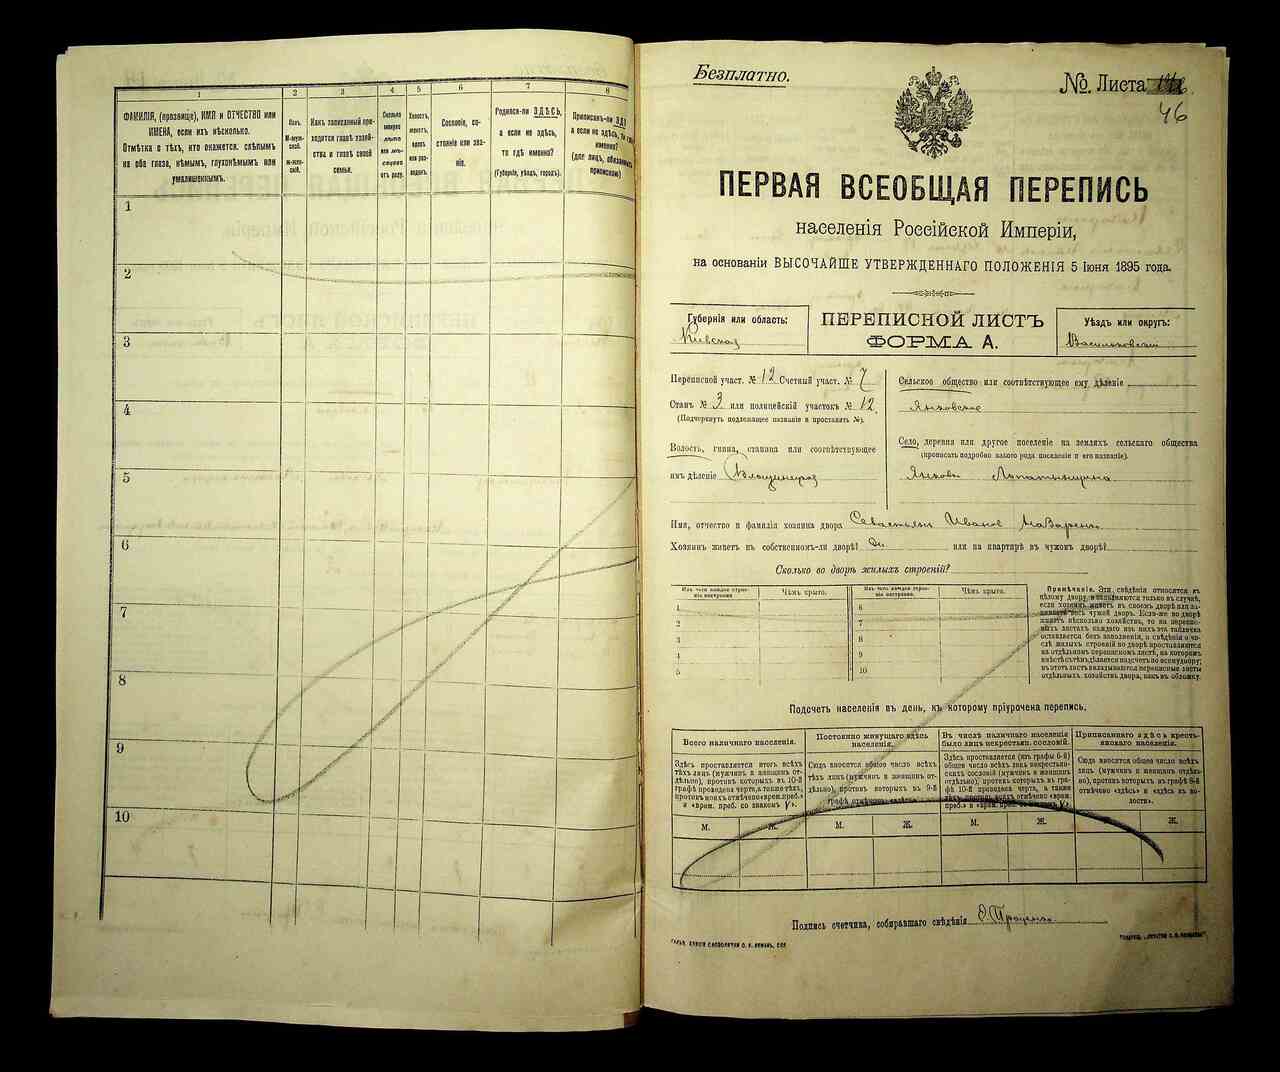 1
2
3
4
5
6
7
8
ФАМИЛІЯ, (прозвище), ИМЯ и ОТЧЕСТВО или
ИМЕНА, если ихъ нѣсколько.
Отмѣтка о тѣхъ, кто окажется: слѣпымъ
на оба глаза, нѣмымъ, глухонѣмымъ или
умалишеннымъ.
Полъ.
М-муж-
ской.
Ж-жен-
скій.
Какъ записанный при-
ходится главѣ хозяй-
ства и главѣ своей
семьи.
Сколько
минуло
лѣтъ
или мѣ-
сяцевъ
отъ роду.
Холостъ,
женатъ,
вдовъ
или раз-
веденъ.
Сословіе, со-
стояніе или зва-
ніе.
Родился-ли ЗДѢСЬ,
а если не здѣсь,
то гдѣ именно?
(Губернія, уѣздъ, городъ).
Приписанъ-ли ЗД
а если не здѣсь, то г
именно?
(для лицъ, обязанн
припискою)
1
2
3
4
5
6
7
8
9
10
Безплатно.
№ Листа
46
ПЕРВАЯ ВСЕОБЩАЯ ПЕРЕПИСЬ
населенія Россійской Имперіи,
на основаніи ВЫСОЧАЙШЕ УТВЕРЖДЕННАГО ПОЛОЖЕНІЯ 5 Іюня 1895 года.
Губернія или область:
Кіевская
ПЕРЕПИСНОЙ ЛИСТЪ
ФОРМА А.
Уѣздъ или округъ:
Васильковскій
Переписной участ. № 12 Счетный участ. № 7
Станъ № 3 или полицейскій участокъ № 12
(Подчеркнуть подлежащее названіе и проставить №).
Волость, гмина, станица или соотвѣтствующее
имъ дѣленіе
Сельское общество или соотвѣтствующее ему дѣленіе
Янковское
Село, деревня или другое поселеніе на земляхъ сельскаго общества
(прописать подробно какого рода поселеніе и его названіе).
Имя, отчество и фамилія хозяина двора Севастьянъ Ивановъ
Хозяинъ живетъ въ собственномъ-ли дворѣ? Да или на квартирѣ въ чужомъ дворѣ?
Сколько во дворѣ жилыхъ строеній?
Изъ чего каждое строе-
ніе построено
Чѣмъ крыто.
Изъ чего каждое строе-
ніе построено.
Чѣмъ крыто.
1
2
3
4
5
6
7
8
9
10
Примѣчаніе. Эти свѣдѣнія относятся къ
цѣлому двору, и заполняются только въ случаѣ,
если хозяинъ живетъ въ своемъ дворѣ или за-
нимаетъ весь чужой дворъ. Если-же во дворѣ
живетъ нѣсколько хозяйствъ, то на перепис-
ныхъ листахъ каждаго изъ нихъ эта табличка
оставляется безъ заполненія, а свѣдѣнія о чи-
слѣ жилыхъ строеній во дворѣ проставляются
на отдѣльномъ переписномъ листѣ, на которомъ
вмѣстѣ съ тѣмъ дѣлается подсчетъ по всему двору;
въ этотъ листъ вкладываются переписные листы
отдѣльныхъ хозяйствъ двора, какъ въ обложку.
Подсчетъ населенія въ день, къ которому пріурочена перепись.
Всего наличнаго населенія.
Постоянно живущаго здѣсь
населенія.
Въ числѣ наличнаго населенія
было лицъ некрестьян. сословій.
Приписаннаго здѣсь кресть-
янскаго населенія.
Здѣсь проставляется итогъ всѣхъ
тѣхъ лицъ (мужчинъ и женщинъ от-
дѣльно), противъ которыхъ въ 10-й
графѣ проведена черта, а также тѣхъ,
противъ коихъ отмѣчено «врем. преб.»
и «врем. преб. со знакомъ V».
Сюда вносится общее число всѣхъ
тѣхъ лицъ (мужчинъ и женщинъ от-
дѣльно), противъ которыхъ въ 9-й
графѣ отмѣчено «здѣсь».
Здѣсь проставляется (изъ графы 6-й)
общее число всѣхъ лицъ некрестьян-
скихъ сословій (мужчинъ и женщинъ
отдѣльно), противъ которыхъ въ гра-
фѣ 10-й проведена черта, а также
тѣхъ, противъ коихъ отмѣчено «врем.
преб.» и «врем. преб. со знакомъ V».
Сюда вносится общее число всѣхъ
лицъ (мужчинъ и женщинъ отдѣль-
но), противъ которыхъ въ графѣ 8-й
отмѣчено «здѣсь» и «здѣсь въ во-
лости».
М.
Ж.
М.
Ж.
М.
Ж.
Ж.
Подпись счетчика, собиравшаго свѣдѣнія